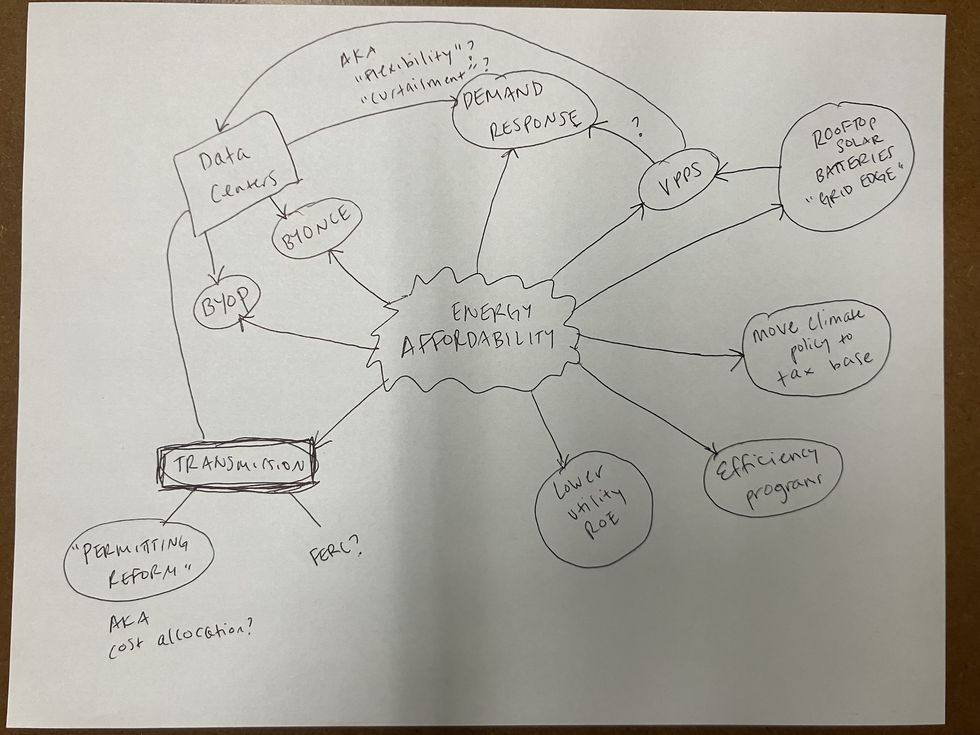 AKA
"Flexibility"?
"Curtailment"?
DEMAND
RESPONSE
?
Data
Centers
VPPS
ROOFTOP
SOLAR
BATTERIES
"GRID EDGE"
BYONCE
BYOP
ENERGY
AFFORDABILITY
move climate
policy to
tax base
TRANSMISSION
Lower
utility
ROE
Efficiency
programs
"PERMITTING
REFORM"
FERC?
AKA
cost allocation?